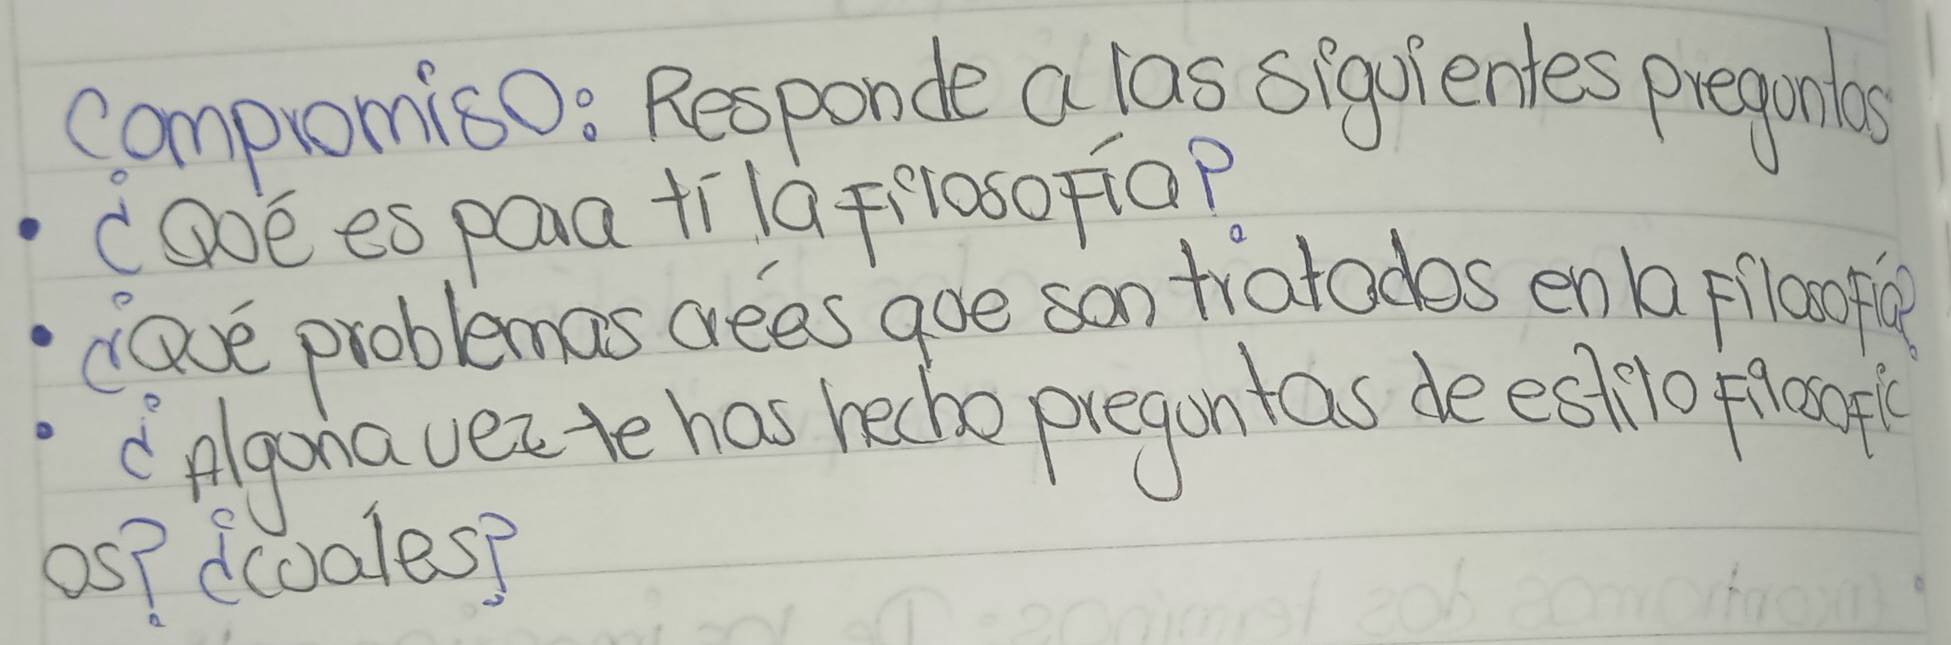 Compromiso: Responde a las siguientes preguntas
• ¿Qué es para ti la Filosofía?
• ¿Qué problemas crées que son tratados en la Filosofía?
• ¿Alguna vez te has hecho preguntas de estilo Filosofic
os? ¿cuales?